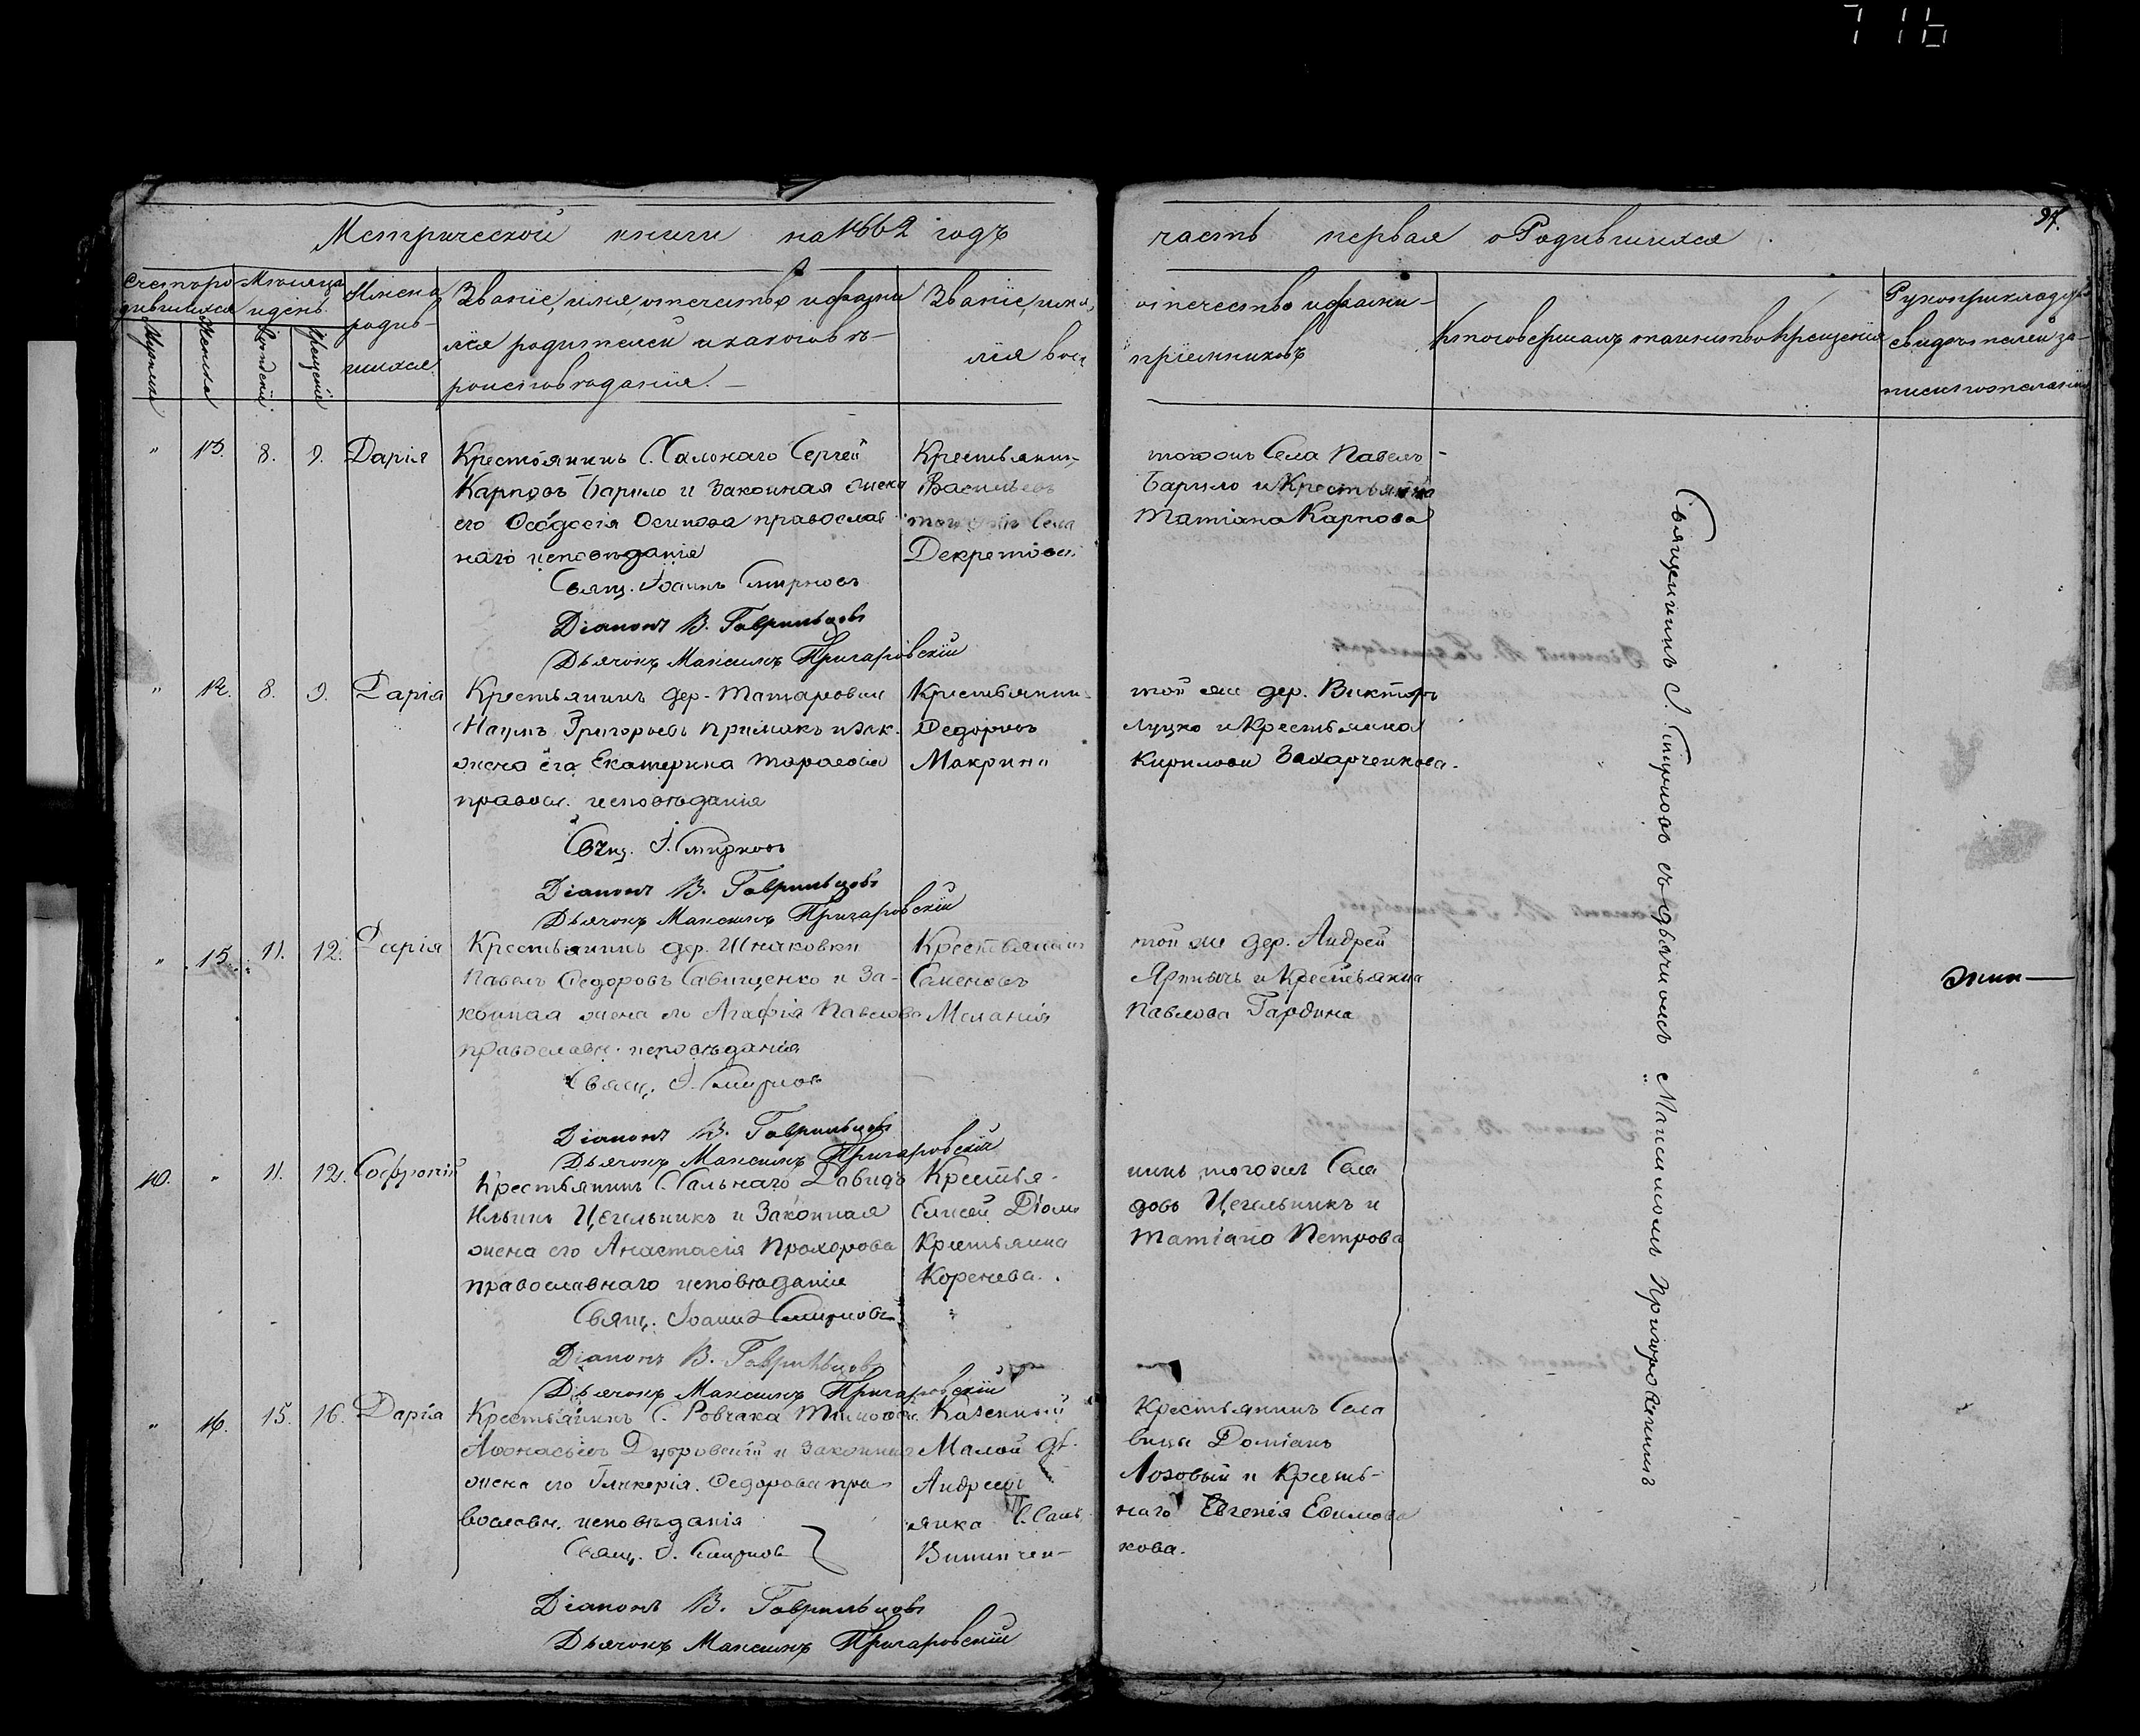 716
97.
Метрической книги на 1862 годъ
часть первая о Родившихся.
Счетъ ро-
дившихся
Мужеска
Женска
Мѣсяцъ
и день
Рожденія
Крещенія
Имена
родив-
шихся
Званіе, имя, отечество и фами
лія родителей и какого вѣ-
роисповѣданія.
Званіе, имя,
лія вос
отечество и фами-
пріемниковъ
Кто совершалъ таинство Крещенія
Рукоприкладство
свидѣтелей за-
писи по желанію
" 13. 8. 9. Дарія
Крестьянинъ С. Сального Сергей
Карповъ Барило и Законная жена
его Ѳеодосія Осипова православ
наго исповѣданія
Свящ. Іоаннъ Смирновъ
Діаконъ В. Гаврильцовъ
Дьячокъ Максимъ Пригаровскій
Крестьянин
Васильевъ
того жъ Села
тогожъ Села Павелъ
Барило и Крестьянка
Татіана Карпова
" 14. 8. 9. Дарія
Крестьянинъ дер. Татаровки
Наумъ Григорьевъ Примакъ и зак.
жена его Екатерина Тарасова
правосл. исповѣданія
Свящ. І. Смирновъ
Діаконъ В. Гаврильцовъ
Дьячокъ Максимъ Пригаровскій
Крестьянин
Ѳедоровъ
Макрина
той же дер. Викторъ
Луцко и Крестьянка
Кирилова Захарченкова.
" 15. 11. 12. Дарія
Крестьянинъ дер.
Павелъ Ѳедоровъ Савищенко и За-
конная жена его Агафія Павлова
православн. исповѣданія
Свящ. І. Смирновъ
Діаконъ В. Гаврильцовъ
Дьячокъ Максимъ Пригаровскій
Крестьянинъ
Семеновъ
Меланія
той же дер. Андрей
и Крестьянка
Павлова
10. " 11. 12. Софроній
Крестьянинъ С. Сального Давидъ
Ильинъ Цегельникъ и Законная
жена его Анастасія Прохорова
православнаго исповѣданія
Свящ. Іоаннъ Смирновъ
Діаконъ В. Гаврильцовъ
Дьячокъ Максимъ Пригаровскій
Крестья-
Елисей Діоми
Крестьянка
Коренева.
нинъ тогожъ Села
довъ Цегельникъ и
Татіана Петрова
" 16. 15. 16. Дарія
Крестьянинъ С. Ровчака Тимоѳей
Аѳонасьевъ Дубровскій и Законная
жена его Гликерія Ѳедорова пра-
вославн. исповѣданія
Свящ. І. Смирновъ
Діаконъ В. Гаврильцовъ
Дьячокъ Максимъ Пригаровскій
Казенный
Малой Дѣ-
Андреевъ
янка С. Саль
Виничен-
Крестьянинъ Села
вицы Доміанъ
Лозовый и Кресть-
наго Евгенія Ефимова
кова.
Священникъ І. Смирновъ съ дьячкомъ Максимомъ Пригоровскимъ